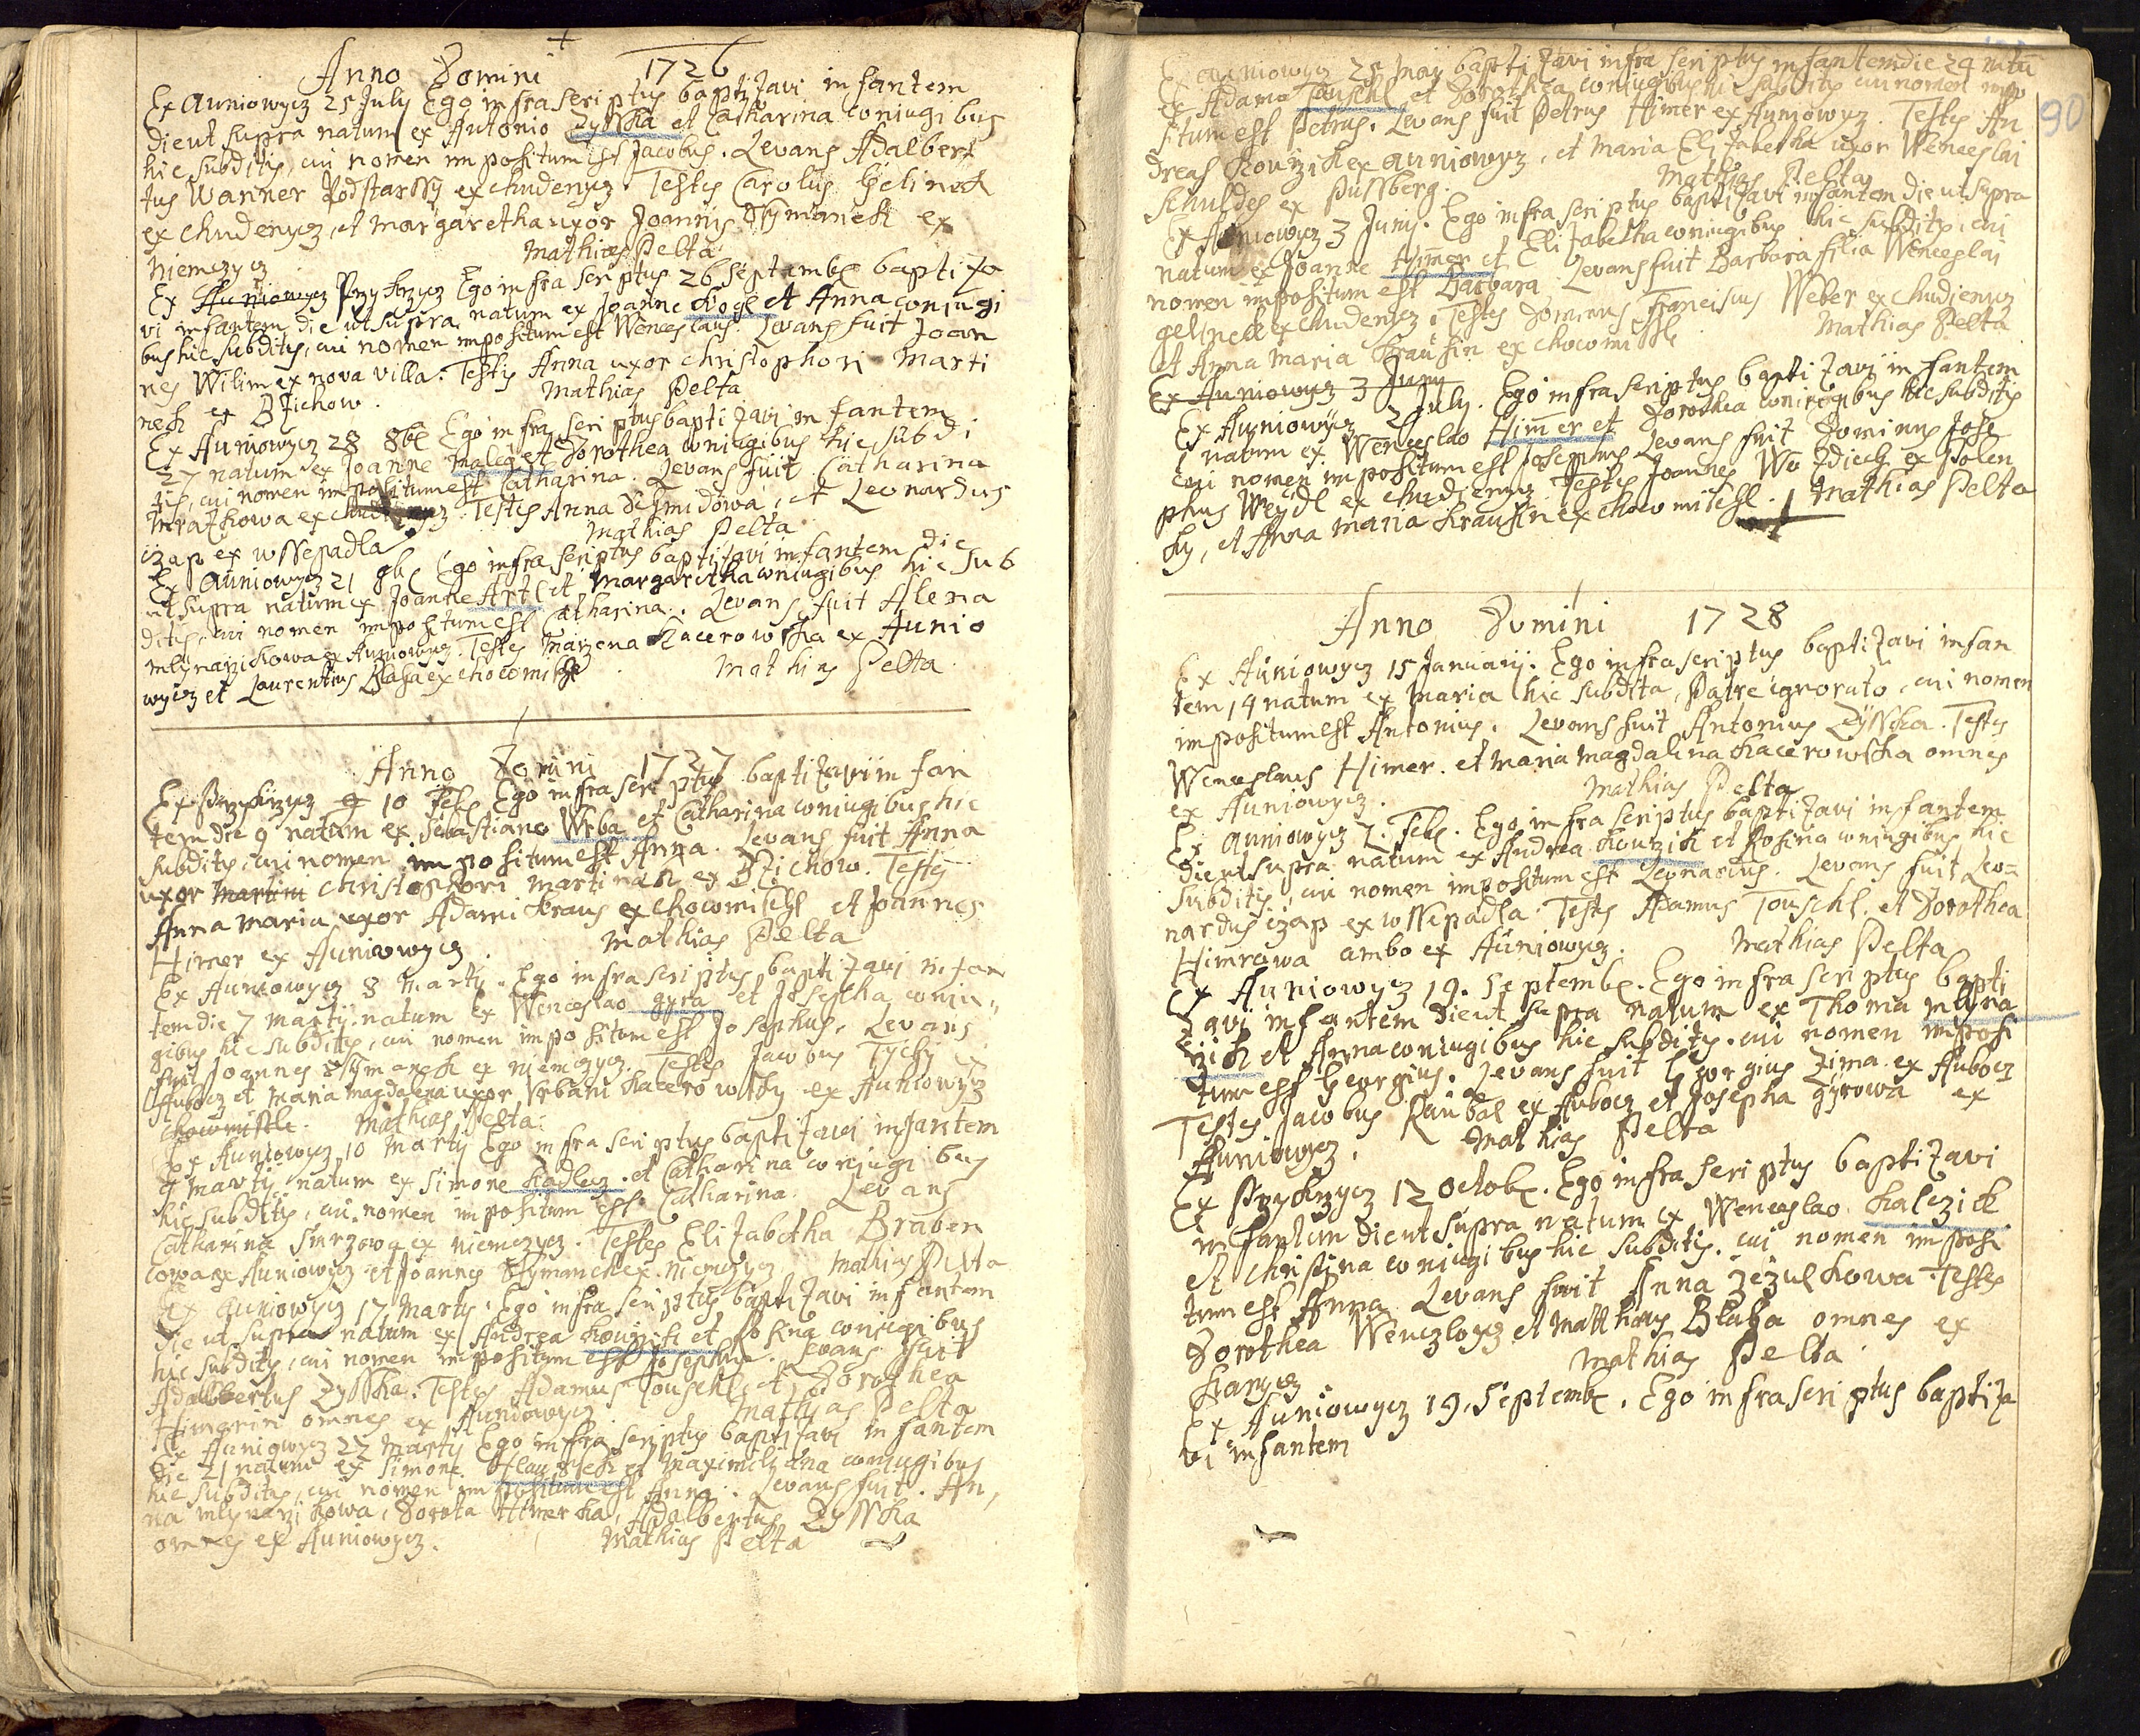 Anno Domini 1726
Ex Auniowycz 25 July Ego infra scriptus baptizavi infantem
die ut supra natum ex Antonio Zysska et Catharina coniugibus
hic subditis, cui nomen impositum est Jacobus. Levans Adalber
tus Wanner Podstarssy ex chudenycz. Testes Carolus Gelinek
ex chudenycz, et Margaretha uxor Joannis Ssymanek ex
Niemczycz Mathias Pelta
Ex Auniowycz Przykrzycz Ego infra scriptus 26 Septembr baptiza
vi infantem die ut supra natum ex Joanne Kogl et Anna coniugi
bus hic subditis, cui nomen impositum est Wenceslaus. Levans fuit Joan
nes Wilim ex nova villa. Testes Anna uxor Christophori Marti
nek ex Bzichow. Mathias Pelta
Ex Auniowycz 28 8br Ego infra scriptus baptizavi infantem
27 natum ex Joanne Maleg et Dorothea coniugibus hic subdi
tis, cui nomen impositum est Catharina. Levans fuit Catharina
Mrazkowa ex Testes Anna Schmidowa, et Leonardus
czap ex wssepadla Mathias Pelta
Ex Auniowycz 21 9br Ego infra scriptus baptizavi infantem die
ut supra natum ex Joanne Artl et Margaretha coniugibus hic sub
ditis, cui nomen impositum est Catharina. Levans fuit Alena
mlynarzickowa ex Auniowycz. Testes Marzena Kacerowska ex Aunio
wycz et Laurentius Blaha ex chocomissl Mathias Pelta
Anno Domini 1727
Ex Przykrzycz 9 10 Febr Ego infra scriptus baptizavi infan
tem die 9 natum ex Sebastiano Wrba et Catharina coniugibus hic
subditis, cui nomen impositum est Anna. Levans fuit Anna
uxor Martin Christophori Martinek ex Bzichow. Testes
Anna Maria uxor Adami Kraus ex chocomischl et Joannes
Himer ex Auniowycz. Mathias Pelta
Ex Auniowycz 8 Marty. Ego infra scriptus baptizavi infan
tem die 7 Martij natum ex Wenceslao gyra et Josepha coniu
gibus hic subditis, cui nomen impositum est Josephus. Levans
fuit Joannes Ssymanek ex niemczycz. Testes Jacobus Tychy ex
Aubocz et Maria Magdalena uxor Urbani Kacerowsky ex Auniowycz
chocomissle. Mathias Pelta.
Ex Auniowycz 10 Marty Ego infra scriptus baptizavi infantem
9 Martij natum ex Simone Kadlecz et Catharina coniugibus
hic subditis, cui nomen impositum est Catharina. Levans
Catharina Surzowa ex niemczycz. Testes Elizabetha Braben
cowa ex Auniowycz et Joannes Ssymanek ex Niemczycz Mathias Pelta
Ex Auniowycz 17 Marty. Ego infra scriptus baptizavi infantem
die ut supra natum ex Andrea Kouzik et Rosina coniugibus
hic subditis, cui nomen impositum est Josephus. Levans fuit
Adalbertus Zysska. Testes Adamus Touschl et Dorothea
Himerin omnes ex Auniowycz. Mathias Pelta
Ex Auniowycz 22 Marty Ego infra scriptus baptizavi infantem
die 21 natum ex Simone et Maximiliana coniugibus
hic subditis, cui nomen impositum est Anna. Levans fuit An
na mlynarzikowa, Dorota Himerka, Adalbertus Zysska
omnes ex Auniowycz. Mathias Pelta
90
Ex Auniowycz 25 May baptizavi infra scriptus infantem die 24 natu
ex Adamo Touschl et Dorothea coniugibus hic subditis cui nomen impo
situm est Petrus. Levans fuit Petrus Himer ex Auniowycz. Testes An
dreas Kouzik ex Auniowycz, et Maria Elizabetha uxor Wenceslai
Schuldes ex Pussberg. Mathias Pelta
Ex Auniowycz 3 Junij. Ego infra scriptus baptizavi infantem die ut supra
natum ex Joanne Hymer et Elizabetha coniugibus hic subditis, cui
nomen impositum est Barbara. Levans fuit Barbara filia Wenceslai
gelineck ex chudenycz. Testes Dominus Franciscus Weber ex chudienycz
et Anna Maria Krausin ex chocomissl Mathias Pelta
Ex Auniowycz 3 Juny
Ex Auniowycz 2 July. Ego infra scriptus baptizavi infantem
natum ex Wenceslao Himer et Dorothea coniugibus hic subditis
cui nomen impositum est Josephus Levans fuit Dominus Jose
phus Weydl ex chudienycz Testes Joannes Wozdiech ex Polen
ky, et Anna Maria Krausin ex chocomischl. Mathias Pelta
Anno Domini 1728
Ex Auniowycz 15 Januarij. Ego infra scriptus baptizavi infan
tem 14 natum ex Maria hic subdita, Patre ignorato, cui nomen
impositum est Antonius. Levans fuit Antonius Zysska. Testes
Wenceslaus Himer. et Maria Magdalina Kacerowska omnes
ex Auniowycz. Mathias Pelta
Ex Auniowycz 7. Febr. Ego infra scriptus baptizavi infantem
die ut supra natum ex Andrea Kouzik et Rosina coniugibus hic
subditis, cui nomen impositum est Leonardus. Levans fuit Leo=
nardus czap ex wssepadla. Testes Adamus Touschl, et Dorothea
Himrowa ambo ex Auniowycz. Mathias Pelta
Ex Auniowycz 19. Septembr. Ego infra scriptus bapti
zavi infantem die ut supra natum ex Thoma mlyna
rzik et Anna coniugibus hic subditis. cui nomen imposi
tum est Georgius. Levans fuit Georgius Zima ex Aubocz
Testes Jacobus Raubal ex Aubocz et Josepha gyrowa ex
Auniowycz. Mathias Pelta
Ex Przykrzycz 12 Octobr. Ego infra scriptus baptizavi
infantem die ut supra natum ex Wenceslao Kalczick
et Christina coniugibus hic subditis. cui nomen imposi
tum est Anna. Levans fuit Anna Zezulkowa Testes
Dorothea Wenczlowcz et Matthias Blaha omnes ex
Kanycz Mathias Pelta.
Ex Auniowycz 19. Septembr. Ego infra scriptus baptiza
vi infantem